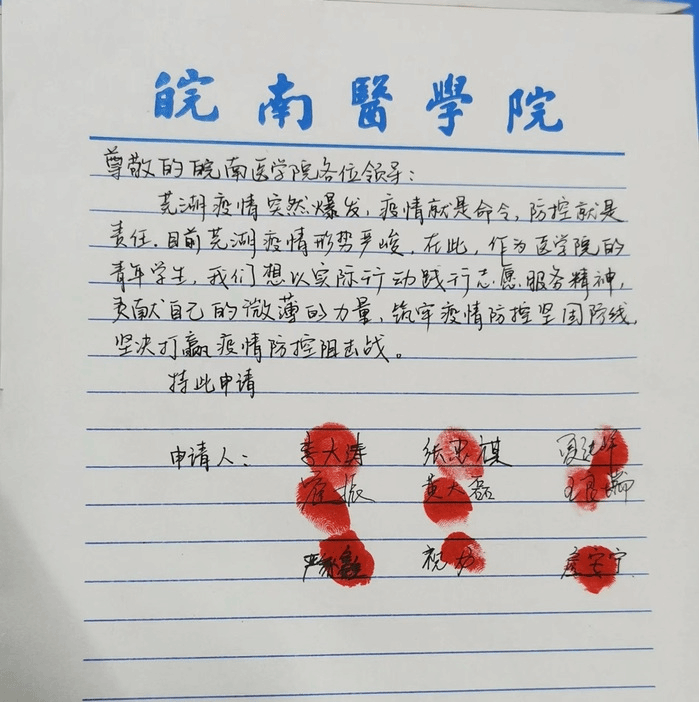 皖南醫學院
尊敬的皖南医学院各位领导：
芜湖疫情突然爆发，疫情就是命令，防控就是
责任。目前芜湖疫情形势严峻，在此，作为医学院的
青年学生，我们想以实际行动践行志愿服务精神，
贡献自己的微薄的力量，筑牢疫情防控坚固防线，
坚决打赢疫情防控阻击战。
特此申请
申请人：李大涛 张忠祺
振 黄大磊
祝力